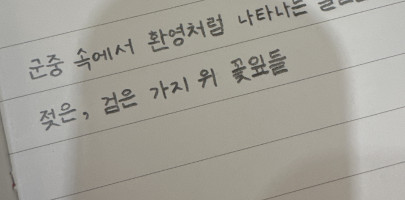 군중 속에서 환영처럼 나타나는
젖은, 검은 가지 위 꽃잎들